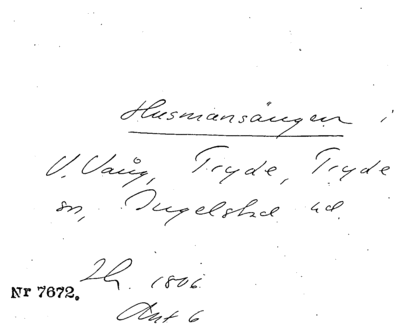 Husmansängen i
V. Vång, Tryde, Tryde
sn, Ingelstad hd.
Lh. 1806
Nr 7672.
Akt 6